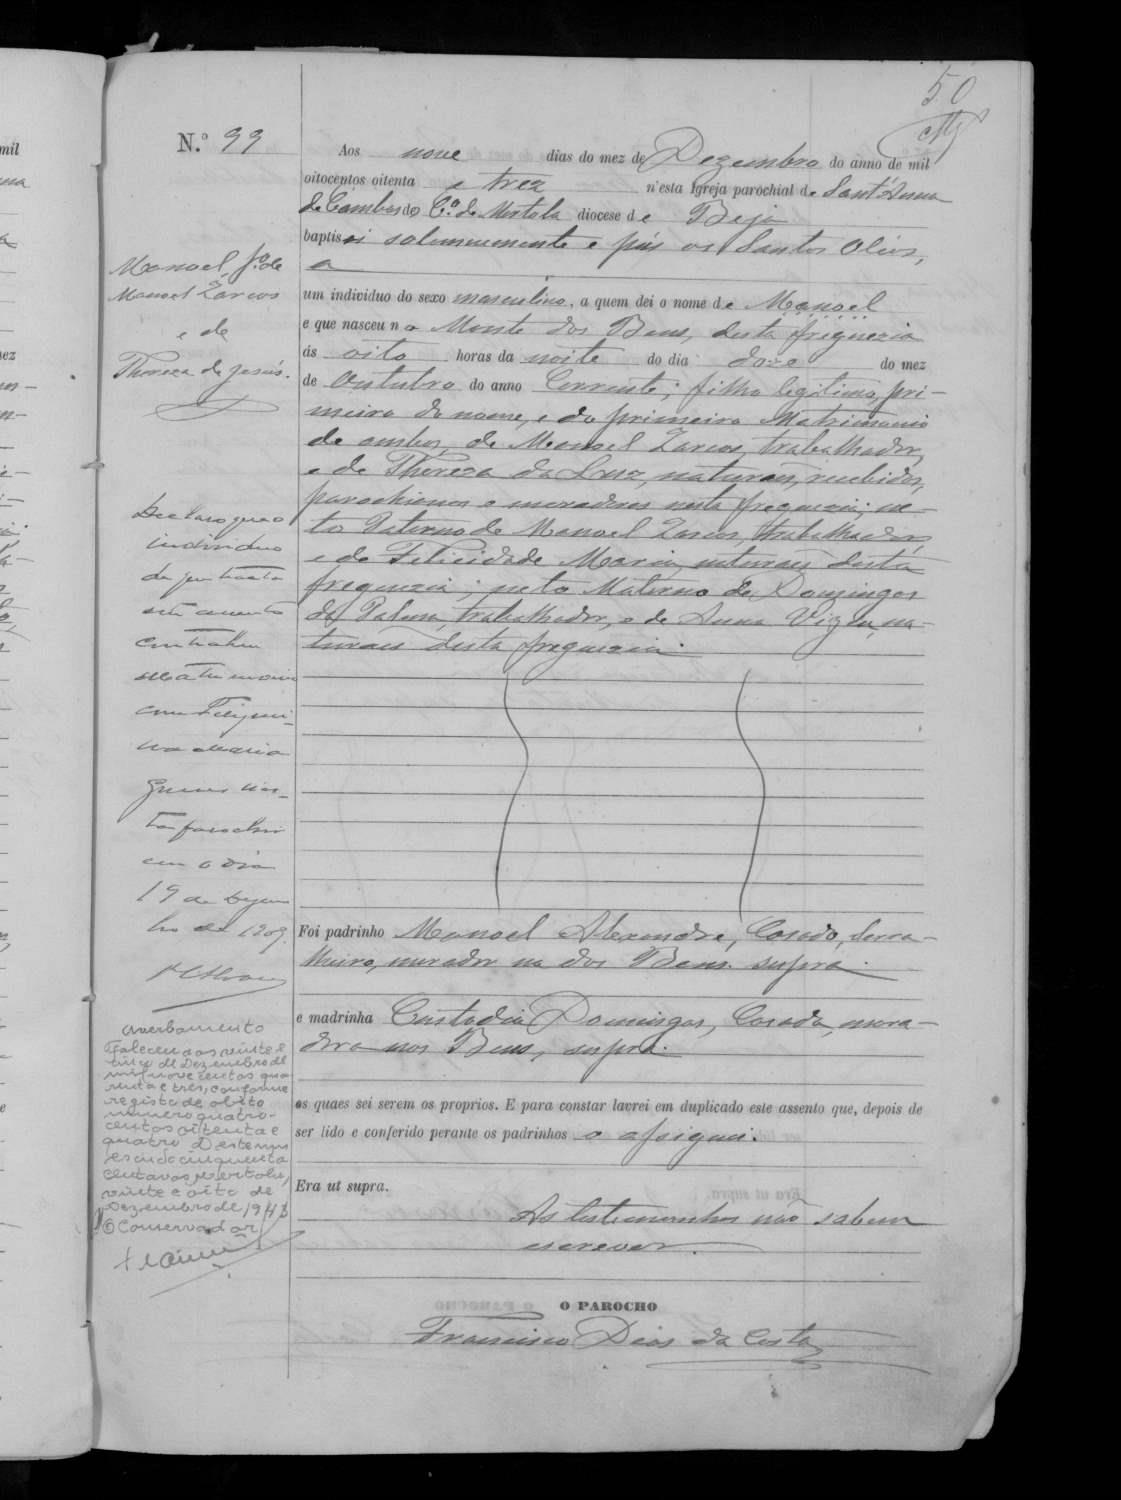 50
N.º 99
Aos nove dias do mez de Dezembro do anno de mil
oitocentos oitenta e trez n'esta Igreja parochial de Sant'Anna
de Cambas do C.º de Mertola diocese de Beja
baptisei solemnemente e puis os Santos Oleos,
a
um individuo do sexo masculino, a quem dei o nome de Manoel
e que nasceu no Monte dos Bens, desta freguezia
ás oito horas da noite do dia doze do mez
de Outubro do anno Corrente; filho legitimo, pri-
meiro do nome, e do primeiro Matrimonio
de ambos, de Manoel Zarcos, trabalhador,
e de Thereza da Luz, naturaes, recebidos,
parochianos e moradores nesta freguezia; ne-
to Paterno de Manoel Zarcos, trabalhador,
e de Felicidade Maria, naturaes desta
freguezia; neto Materno de Domingos
da Palma, trabalhador, e de Anna na-
turaes desta freguezia.
Foi padrinho Manoel Alexandre, Casado,
morador na dos Bens supra.
e madrinha Custodia Domingas, Casada, mora-
dora nos Bens, supra.
os quaes sei serem os proprios. E para constar lavrei em duplicado este assento que, depois de
ser lido e conferido perante os padrinhos o assignei.
Era ut supra.
As testemunhas não sabem
escrever.
O PAROCHO
Francisco Dias da Costa
Manoel, f.º de
Manoel Zarcos
e de
Thereza de Jesus.
Declaro que o
individuo
de que trata
este assento
contrahiu
matrimonio
com
Maria
nes-
ta parochia
em o dia
19 de
de 1909.
Averbamento
Faleceu aos vinte e
cinco de Dezembro de
mil nove centos qua-
renta e três, conforme
registo de obito
numero quatro-
centos oitenta e
quatro Deste
escudo cinquenta
centavos Mertola,
vinte e oito de
Dezembro de 1943
O Conservador